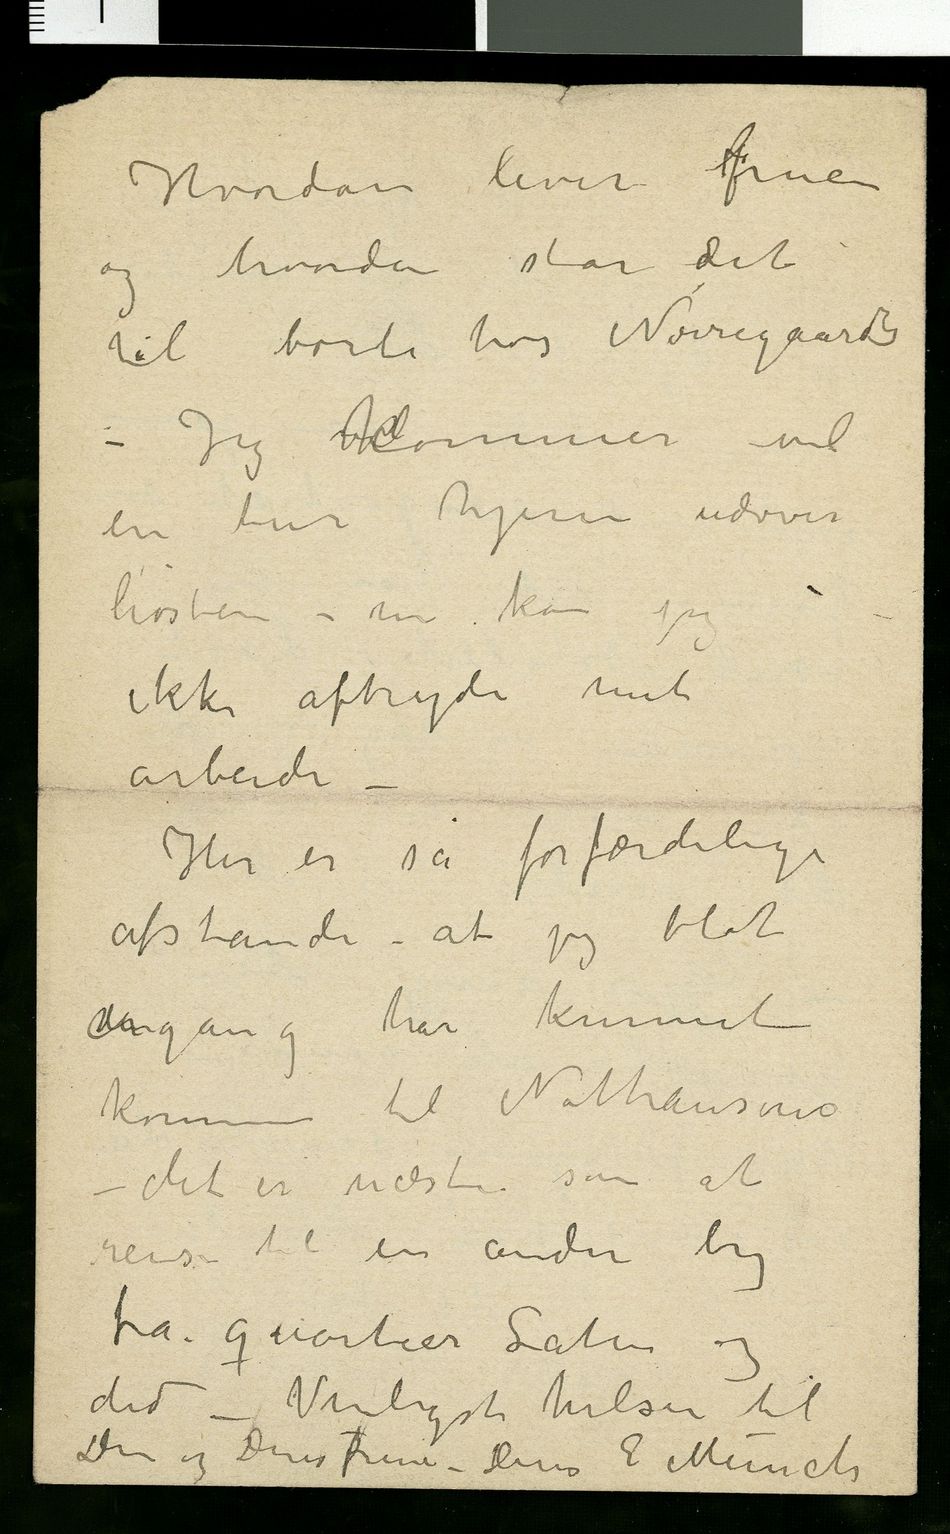 Hvordan lever fruen
og hvordan står det
til borte hos Nørregaards
– Jeg kommer vel
en tur hjem udover
høsten – nu kan jeg
ikke afbryde mit
arbeide –
Her er så forfærdelige
afstande – at jeg blot
engang har kunnet
komme til Nathansons
– det er næsten som at
reise til en anden by
fra quartier Latin og
did – Venligst hilsen til
Dem og Deres Frue – Deres E Munch